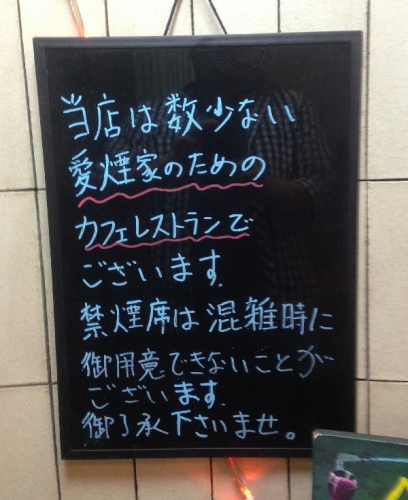 当店は数少ない
愛煙家のための
カフェレストランで
ございます.
禁煙席は混雑時に
御用意できないことが
ございます.
御了承下さいませ。